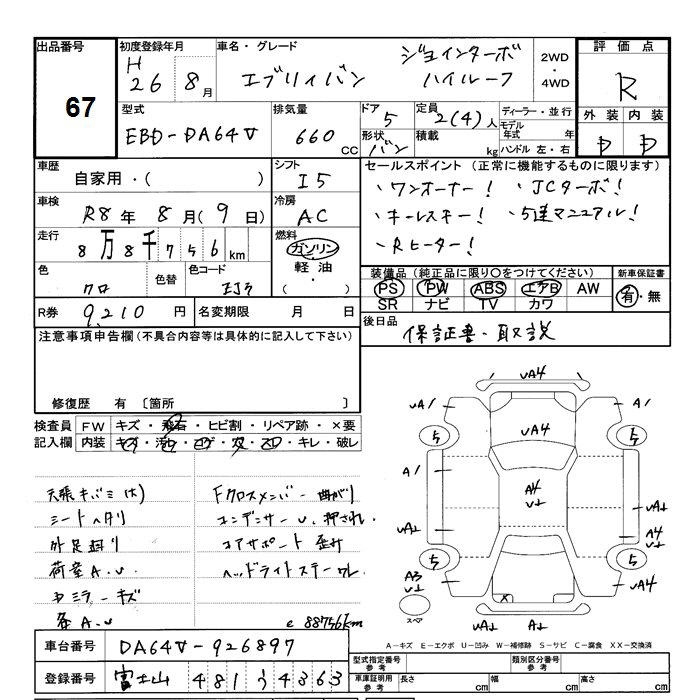 出品番号 67
初度登録年月 H 26年 8月
車名・グレード エブリィバン ジョインターボ ハイルーフ
2WD・4WD
評価点 R
外装 D 内装 D
型式 EBD-DA64V
排気量 660 CC
ドア 5 形状 バン
定員 2(4)人 積載 kg
ディーラー・並行
モデル年式 年
ハンドル 左・右
車歴 自家用・( )
シフト I5
セールスポイント (正常に機能するものに限ります)
・ワンオーナー! ・JCターボ!
・キーレスキー! ・5速マニュアル!
・Rヒーター!
車検 R8年 8月(9日)
冷房 AC
走行 8万8千756km
燃料 ガソリン・軽油・( )
色 クロ 色替 色コード ZJ3
装備品 (純正品に限り○をつけてください) 新車保証書
PS PW ABS エアB AW 有・無
SR ナビ TV カワ
R券 9,210円 名変期限 月 日
後日品 保証書・取説
注意事項申告欄(不具合内容等は具体的に記入して下さい)
修復歴 有 〔箇所 〕
検査員 FW キズ・飛石・ヒビ割・リペア跡・×要
記入欄 内装 キズ・汚・コゲ・穴・コロ・キレ・破レ
天張キバミ(大)
シートヘタリ
外足廻リ
荷室A.U
Dミラーキズ
各A.U
Fクロスメンバー曲がり
コンデンサーU、押され
コアサポート歪み
ヘッドライトステーワレ
e 88756km
UA4
A1
A1
5
5
UA4
A1
A4
U⊥
UA⊥
UA⊥
A4
U⊥
5
5
A3
U⊥
UA4
X
スペア
UA⊥ A⊥
A-キズ E-エクボ U-凹み W-補修跡 S-サビ C-腐食 XX-交換済
車台番号 DA64V-926897
登録番号 富士山 481 う 4363
型式指定番号 参考 類別区分番号 参考
車庫証明用 参考 長さ cm 幅 cm 高さ cm